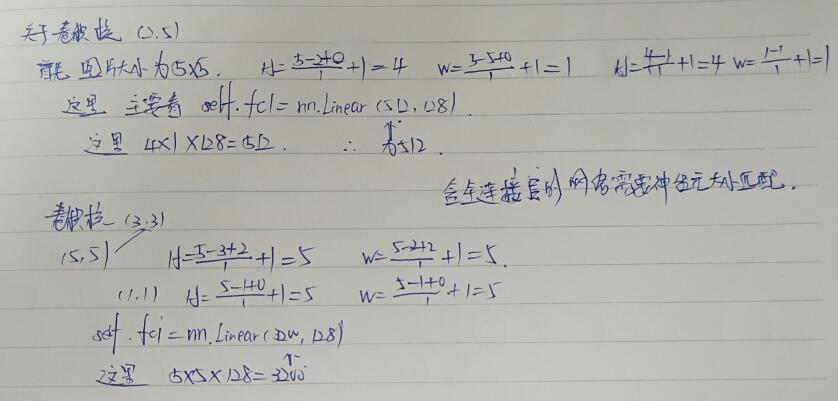 关于卷积核 (2.5)
首先 图片大小为5×5. H=\frac{5-2+0}{1}+1=4 W=\frac{5-5+0}{1}+1=1 H=\frac{4-1}{1}+1=4 W=\frac{1-1}{1}+1=1
这里 主要看 self.fc1=nn.Linear(512,128)
这里 4×1×128=512. ∴ 为512.
含全连接层的网络需要神经元大小匹配.
卷积核 (3.3)
(5,5) H=\frac{5-3+2}{1}+1=5 W=\frac{5-3+2}{1}+1=5.
(1.1) H=\frac{5-1+0}{1}+1=5 W=\frac{5-1+0}{1}+1=5
self.fc1=nn.Linear(3200,128)
这里 5×5×128=3200